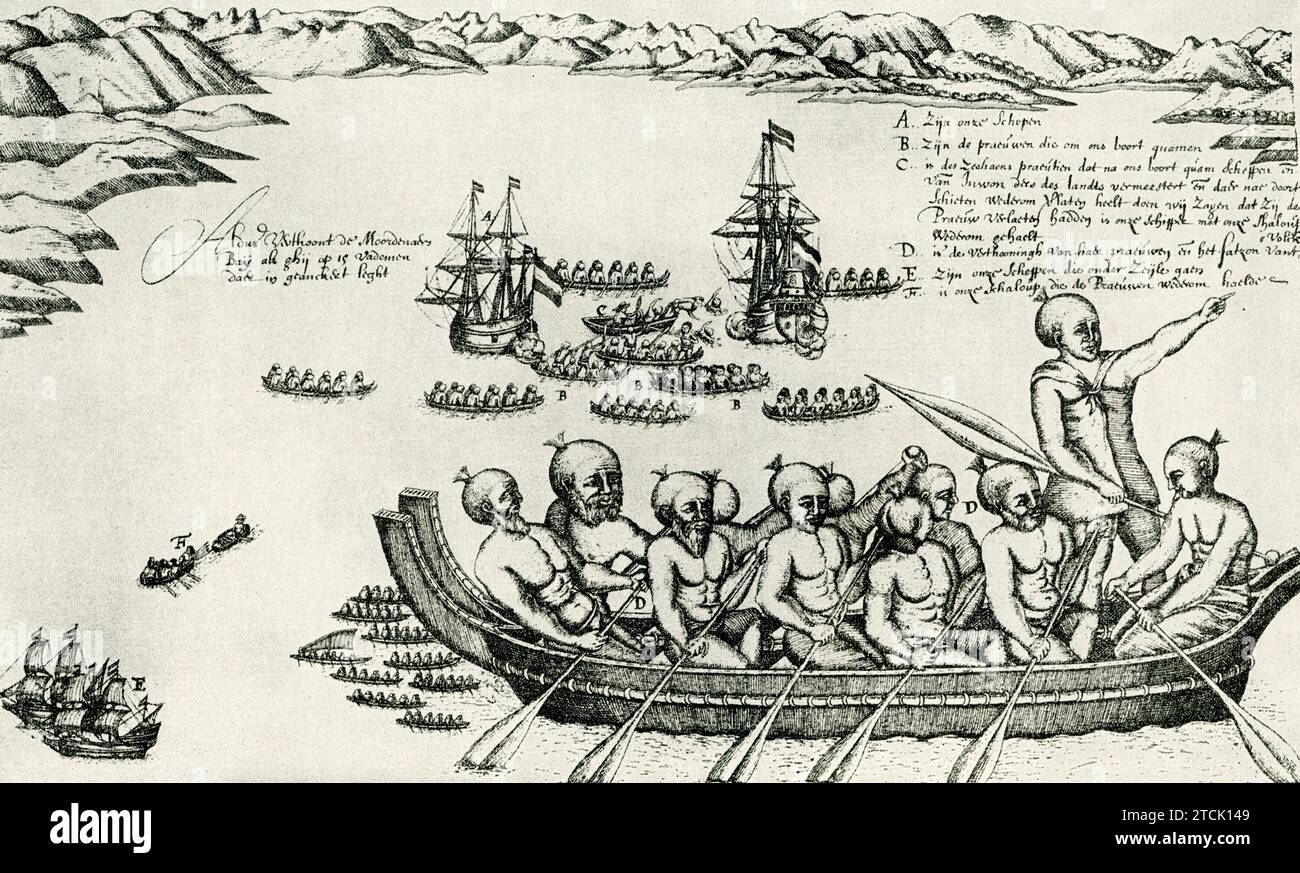 Aldus Verthoont de Moordenaers
Baij als ghij op 15 Vademen
daer in geanckert leght
A.. Zijn onze Schepen
B.. Zijn de praeuwen die om ons boort quamen
C.. is des Zeehaens praeutien dat na ons boort quam scheppen en
van Inwonders des landts vermeestert en daer nae door t
Schieten Wederom Verlaten heeft doen wij Zagen dat Zij de
Praeuw Verlaeten hadden is onze Schipper met onze Shaloup
Wederom gehaelt
D.. is de Verthooningh Van haer praeuwen en het fatzon Van t Volck
E.. Zijn onze Scheepen die onder Zeijle gaen
F.. is onze Schaloup die de Praeuwen wederom haelde
A
A
B
B
B
D
D
E
F
alamy
Image ID: 2TCK149
www.alamy.com